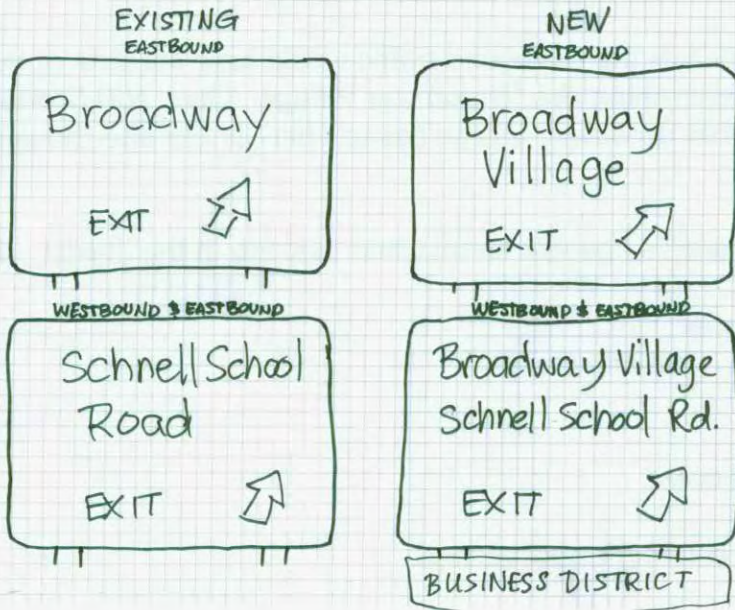 EXISTING
EASTBOUND
Broadway
EXIT
WESTBOUND & EASTBOUND
Schnell School
Road
EXIT
NEW
EASTBOUND
Broadway
Village
EXIT
WESTBOUND & EASTBOUND
Broadway Village
Schnell School Rd.
EXIT
BUSINESS DISTRICT